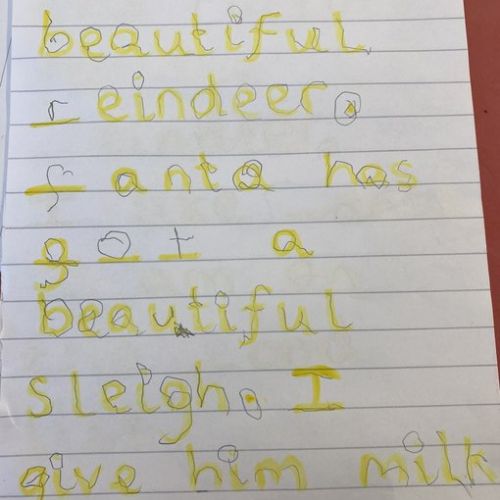 beautiful
reindeer.
santa has
got a
beautiful
sleigh. I
give him milk